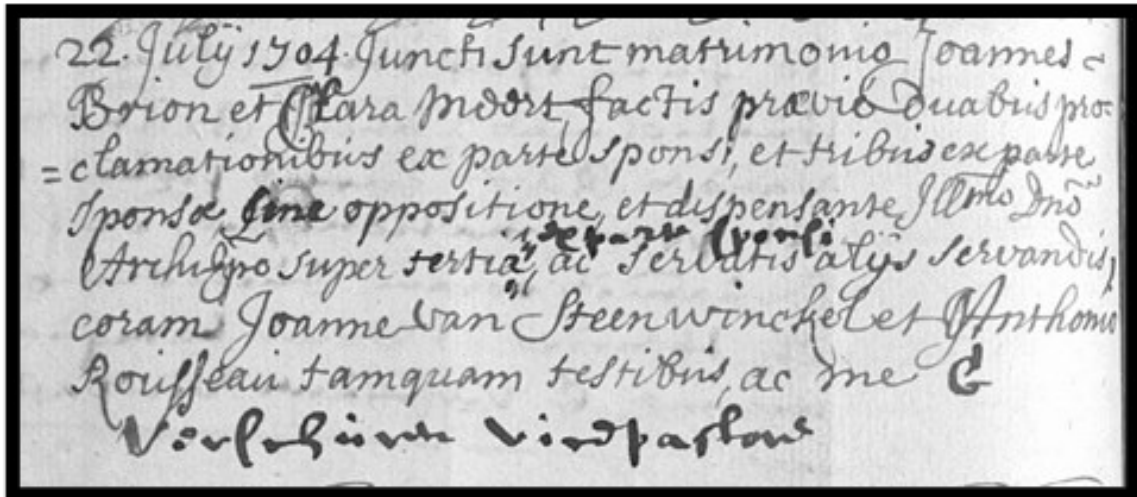 22. Julij 1704. Juncti sunt matrimonio Joannes
Brion et Clara Moort, factis prævie duabus pro=
=clamationibus ex parte sponsi, et tribus ex parte
sponsæ, sine oppositione, et dispensante Ill͞mo Dn͞o
ex parte sponsi
Archiepo super tertia, ac servatis alijs servandis,
coram Joanne van Steenwinckel et Anthonio
Rousseau tamquam testibus, ac me G
vicepastore